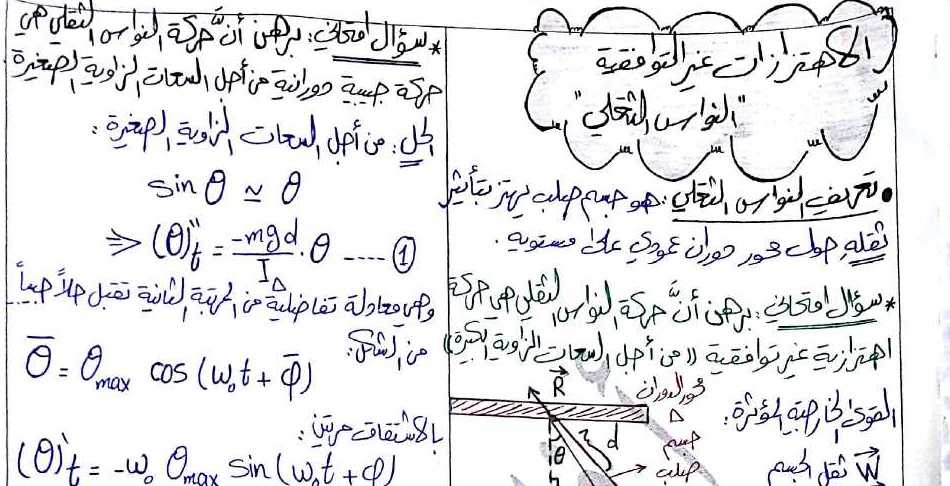 الاهتزازات غير التوافقية
"النواس الثقلي"
• تعريف النواس الثقلي: هو جسم صلب يهتز بتأثير
ثقله حول محور دوران عمودي على مستويه.
* سؤال امتحاني: برهن أنَّ حركة النواس الثقلي هي حركة
اهتزازية غير توافقية ((من أجل السعات الزاوية الكبيرة))
القوى الخارجية المؤثرة:
W ثقل الجسم
R
محور الدوران
Δ
d
جسم
صلب
θ
h
* سؤال امتحاني: برهن أنَّ حركة النواس الثقلي هي
حركة جيبية دورانية من أجل السعات الزاوية الصغيرة
الحل: من أجل السعات الزاوية الصغيرة:
sin θ ≃ θ
⇒ (θ)''t = -mgd/IΔ . θ ---- ①
وهي معادلة تفاضلية من المرتبة الثانية تقبل حلاً جيبياً
من الشكل:
θ̄ = θmax cos (ω₀t + φ̄)
بالاشتقاق مرتين:
(θ)'t = -ω₀ θmax sin (ω₀t + φ)